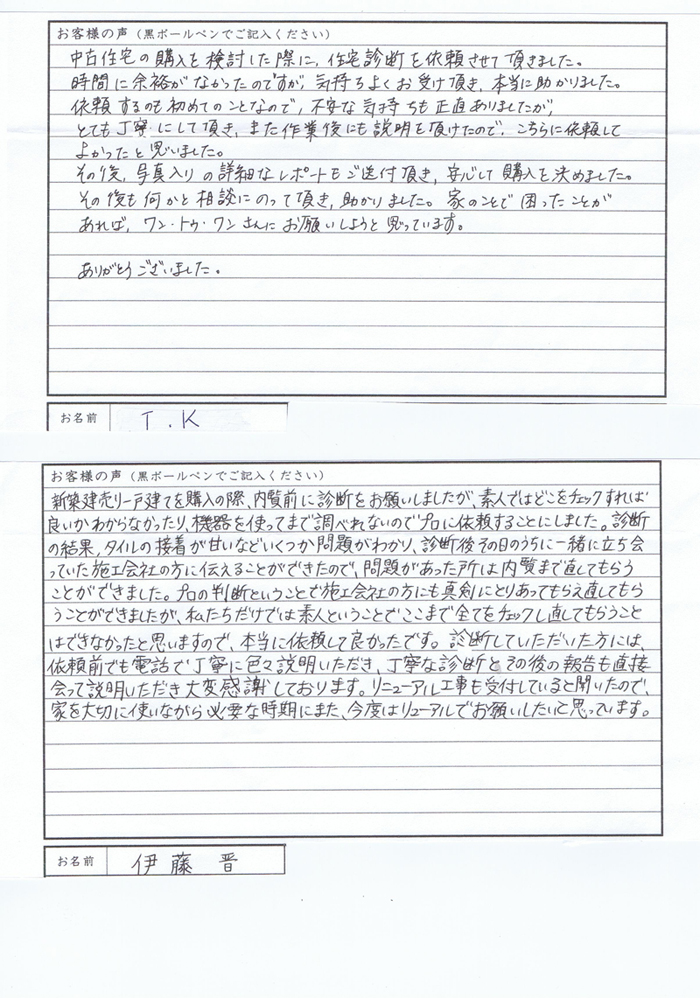 お客様の声（黒ボールペンでご記入ください）
中古住宅の購入を検討した際に、住宅診断を依頼させて頂きました。
時間に余裕がなかったのですが、気持ちよくお受け頂き、本当に助かりました。
依頼するのも初めてのことなので、不安な気持ちも正直ありましたが、
とても丁寧にして頂き、また作業後にも説明を頂けたので、こちらに依頼して
よかったと思いました。
その後、写真入りの詳細なレポートもご送付頂き、安心して購入を決めました。
その後も何かと相談にのって頂き、助かりました。家のことで困ったことが
あれば、ワン・トゥ・ワンさんにお願いしようと思っています。
ありがとうございました。
お名前
T.K
お客様の声（黒ボールペンでご記入ください）
新築建売り一戸建てを購入の際、内覧前に診断をお願いしましたが、素人ではどこをチェックすれば
良いかわからなかったり、機器を使ってまで調べれないのでプロに依頼することにしました。診断
の結果、タイルの接着が甘いなどいくつか問題がわかり、診断後その日のうちに一緒に立ち会
っていた施工会社の方に伝えることができたので、問題があった所は内覧まで直してもらう
ことができました。プロの判断ということで施工会社の方にも真剣にとりあってもらえ直してもら
うことができましたが、私たちだけでは素人ということでここまで全てをチェックし直してもらうこと
はできなかったと思いますので、本当に依頼して良かったです。診断していただいた方には、
依頼前でも電話で丁寧に色々説明いただき、丁寧な診断とその後の報告も直接
会って説明いただき大変感謝しております。リニューアル工事も受付していると聞いたので、
家を大切に使いながら必要な時期にまた、今度はリューアルでお願いしたいと思っています。
お名前
伊藤 晋